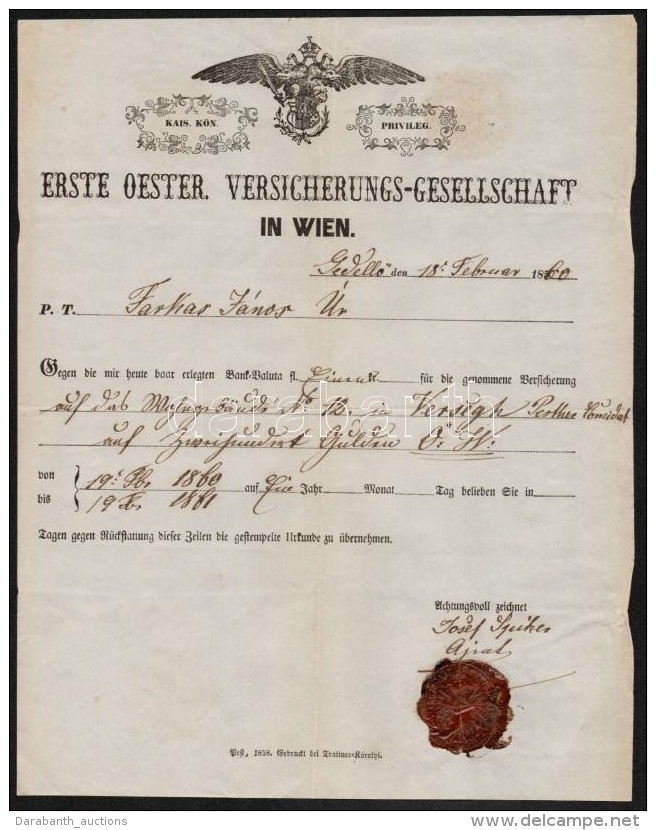 KAIS. KÖN.
PRIVILEG.
ERSTE OESTER. VERSICHERUNGS-GESELLSCHAFT
IN WIEN.
Gedellö den 18t Februar 1860
P. T. Farkas János Úr
Gegen die mir heute baar erlegten Bank-Valuta fl. Einen für die genommene Versicherung
auf das Wohngebäude No 12. in Versegh Pesther Comidat
auf Zweihundert Gulden Ö. W:
von 19t 1860 auf Ein Jahr Monat Tag belieben Sie in
bis 19 1861
Tagen gegen Rückstattung dieser Zeilen die gestempelte Urkunde zu übernehmen.
Achtungsvoll zeichnet
Josef Spitzer
Agent
Pest, 1858. Gedruckt bei Trattner-Károlyi.
darabanth
Darabanth_auctions
delcampe.net